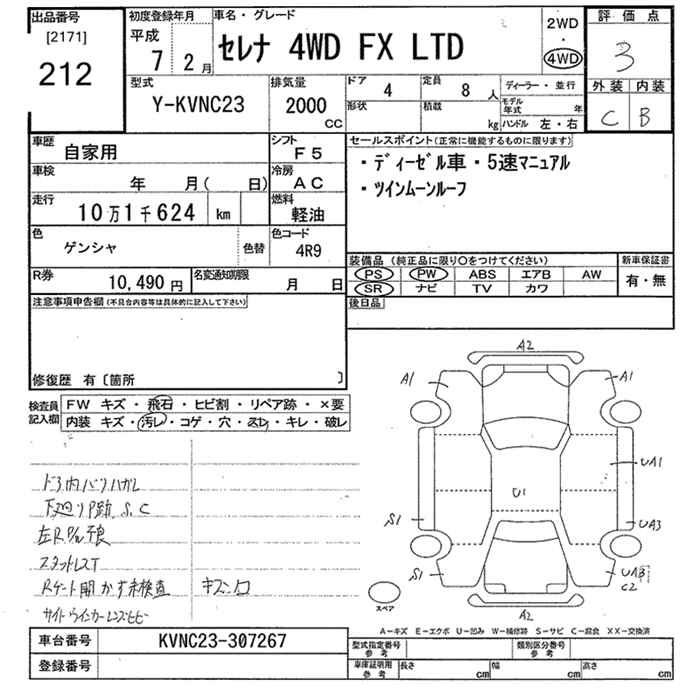 出品番号
[2171]
212
初度登録年月
平成
7 2月
車名・グレード
セレナ 4WD FX LTD
2WD
・
4WD
評価点
3
外装 内装
C B
型式
Y-KVNC23
排気量
2000
CC
ドア
4
定員
8 人
形状
積載
kg
ディーラー・並行
モデル年式 年
ハンドル 左・右
車歴
自家用
シフト
F5
車検
年 月( 日)
冷房
AC
走行
10万1千624 km
燃料
軽油
色
ゲンシャ
色替
色コード
4R9
R券
10,490円
名変通知期限
月 日
セールスポイント(正常に機能するものに限ります)
・ディーゼル車・5速マニュアル
・ツインムーンルーフ
装備品(純正品に限り○をつけてください)
新車保証書
PS PW ABS エアB AW
有・無
SR ナビ TV カワ
後日品
注意事項申告欄(不具合内容等は具体的に記入して下さい)
修復歴 有〔箇所 〕
検査員記入欄
FW キズ・飛石・ヒビ割・リペア跡・×要
内装 キズ・汚レ・コゲ・穴・スレ・キレ・破レ
ドア内バリハガレ
下廻りP跡 S.C
左R 不良
スタットレスT
Rゲート開かず未検査
サイドウインカーレンズヒビ
A2
A1 A1
UA1
U1
S1 UA3
S1
C2
スペア
A2
A―キズ E―エクボ U―凹み W―補修跡 S―サビ C―腐食 XX―交換済
車台番号
KVNC23-307267
登録番号
型式指定番号
参考
類別区分番号
参考
車庫証明用
参考
長さ cm 幅 cm 高さ cm